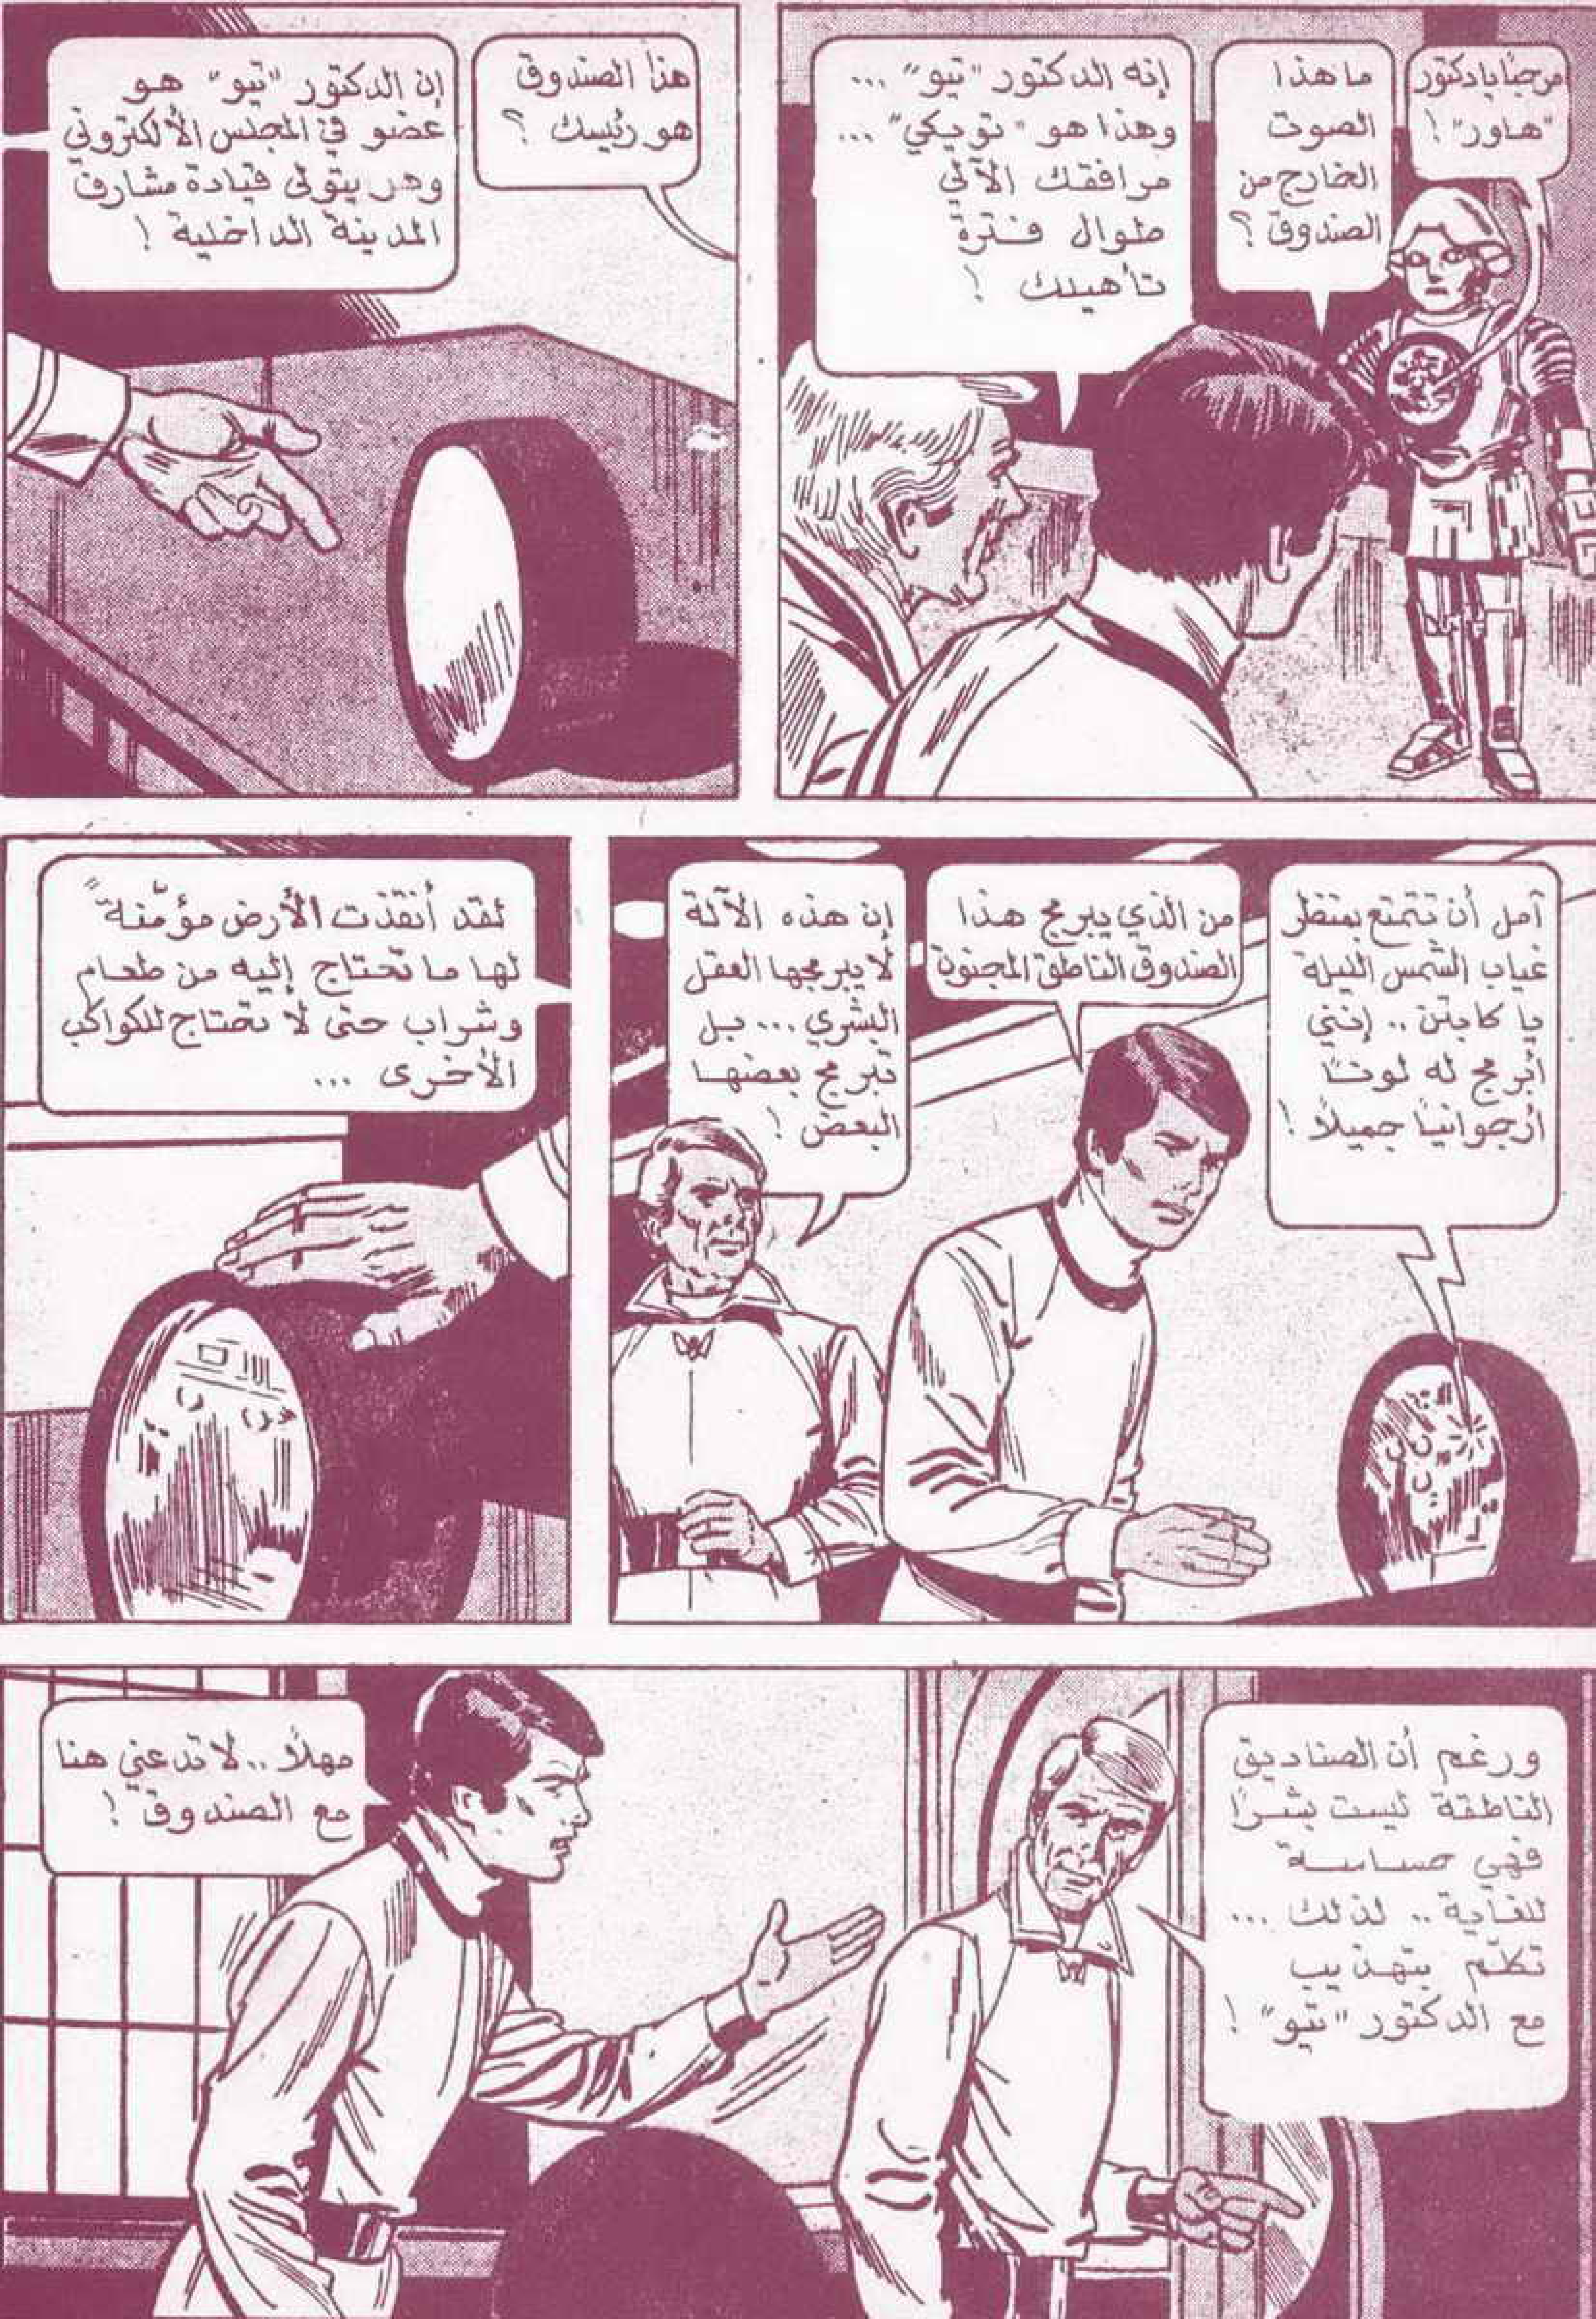 مرحبًا يا دكتور
"هاور"!
ما هذا
الصوت
الخارج من
الصندوق؟
إنه الدكتور "تيو" ...
وهذا هو "تويكي" ...
مرافقك الآلي
طوال فترة
تأهيلك !
هذا الصندوق
هو رئيسك ؟
إن الدكتور "تيو" هو
عضو في المجلس الألكتروني
وهر يتولى قيادة مشارف
المدينة الداخلية !
آمل أن تتمتع بمنظر
غياب الشمس الليلة
يا كابتن .. إنني
أبرمج له لونًا
أرجوانيًا جميلًا !
من الذي يبرمج هذا
الصندوق الناطق المجنون
إن هذه الآلة
لا يبرمجها العقل
البشري ... بل
تبرمج بعضها
البعض !
لقد أنقذت الأرض مؤمّنةً
لها ما تحتاج إليه من طعام
وشراب حتى لا تحتاج للكواكب
الأخرى ...
ورغم أن الصناديق
الناطقة ليست بشرًا
فهي حساسة
للغاية .. لذلك ...
تكلّم بتهذيب
مع الدكتور "تيو" !
مهلًا .. لا تدعني هنا
مع الصندوق !